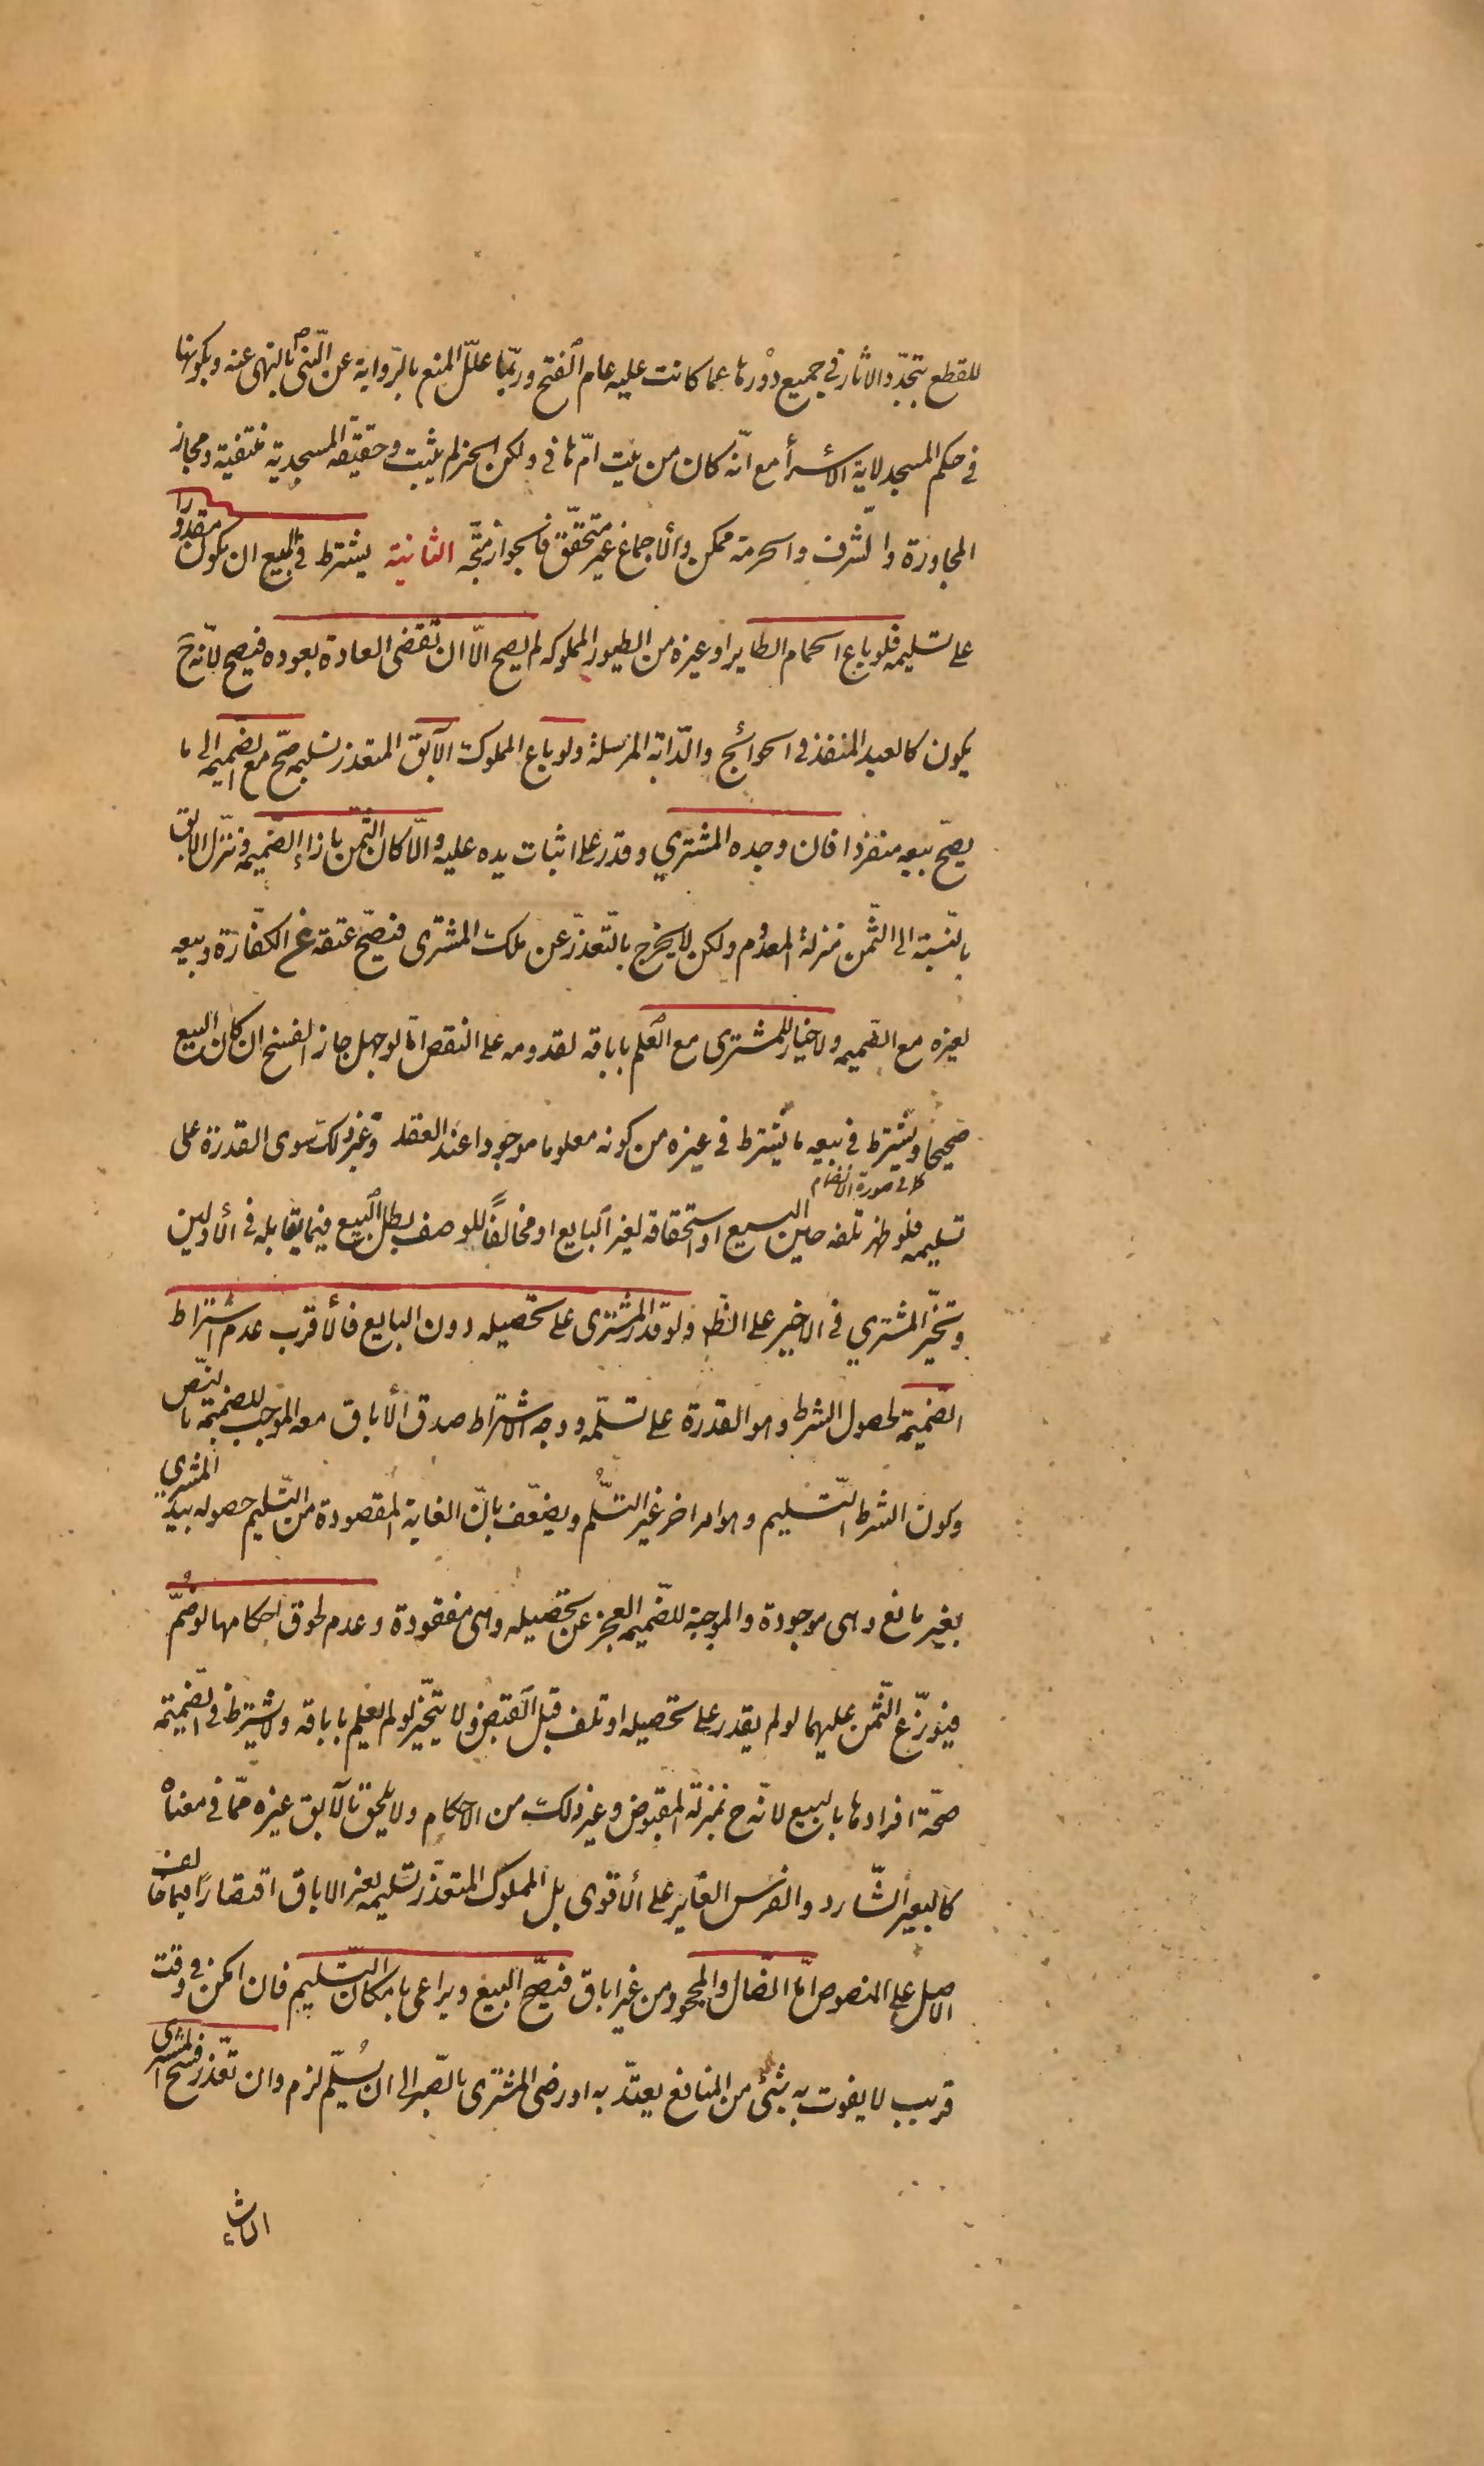 للقطع بتجدّد الاثار في جميع دورها عما كانت عليه عام الفتح وربّما علّل المنع بالرّواية عن النّبيّ ص بالنهى عنه وبكونها
في حكم المسجد لاية الأسرأ مع انّه كان من بيت امّ هاني ولكن الخبر لم يثبت وحقيقة المسجدية منتفية ومجاز
المجاورة والشّرف والحرمة ممكن والأجماع غير متحقّق فالجواز متّجه الثانية يشترط في المبيع ان يكون مقدورا
على تسليمه فلو باع الحمام الطاير او غيره من الطيور المملوكه لم يصح الّا ان تقضى العادة بعوده فيصح لانّه ح
يكون كالعبد المنفذ في الحوائج والدّابة المرسلة ولو باع المملوك الآبق المتعذر تسليمه صحّ مع الضّميمه الى ما
يصحّ بيعه منفردا فان وجده المشتري وقدر على اثبات يده عليه والّا كان الثّمن بازاء الضّميمه ونزّل الابق
بالنّسبة الى الثّمن منزلة المعدوم ولكن لا يخرج بالتّعذر عن ملك المشترى فيصحّ عتقه عن الكفّارة وبيعه
لغيره مع الضّميمه ولا خيار للمشترى مع العلم باباقه لقدومه على النقص امّا لو جهل جاز الفسخ ان كان البيع
صحيحا ويشترط في بيعه ما يشترط في غيره من كونه معلوما موجودا عند العقد وغير ذلك سوى القدرة على
تسليمه فلو ظهر تلفه حين البيع او استحقاقه لغير البايع او مخالفًا للوصف بطل البيع فيما يقابله في الأولين
وتخيّر المشتري في الاخير على الظ ولو قدر المشترى على تحصيله دون البايع فالأقرب عدم اشتراط
الضّميمة لحصول الشرط وهو القدرة على تسلّمه ووجه الاشتراط صدق الأباق معه الموجب للضّميمة بالنّص
وكون الشرط التّسليم وهو امر اخر غير التسلّم ويضعّف بانّ الغاية المقصودة من التّسليم حصوله بيد المشتري
بغير مانع وهى موجودة والموجبة للضّميمه العجز عن تحصيله وهى مفقودة وعدم لحوق احكامها لو ضُمّ
فيوزّع الثّمن عليهما لو لم يقدر على تحصيله او تلف قبل القبض ولا يتخيّر لو لم يعلم باباقه ولا يشترط في الضّميمة
صحّة افرادها بالبيع لانّه ح بمنزلة المقبوض وغير ذلك من الاحكام ولا يلحق بالآبق غيره ممّا في معناه
كالبعير الشّارد والفرس العاير على الأقوى بل المملوك المتعذّر تسليمه بغير الاباق اقتصارًا فيما خالف
الاصل على المنصوص امّا الضّال والمجحود من غير اباق فيصّح البيع ويراعى بامكان التّسليم فان امكن في وقت
قريب لا يفوت به شئ من المنافع يعتدّ به او رضى المشترى بالصّبر الى ان يُسلّم لزم وان تعّذر فسخ المشترى